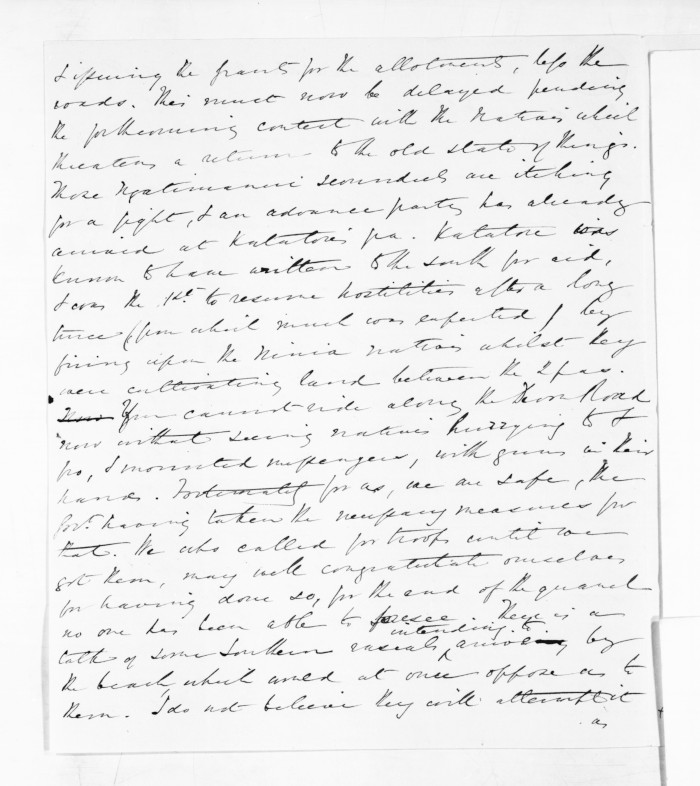 & issuing the grants for the allotments, less the
roads. This must now be delayed pending
the forthcoming contest with the Natives which
threatens a return to the old state of things.
Those Ngatimaniui scoundrels are itching
for a fight, & an advance party has already
arrived at Katatore's pa. Katatore was
known to have written to the south for aid,
& was the 1st. to resume hostilities after a long
truce (from which much was expected) by
firing upon the Ninia natives whilst they
were cultivating land between the 2 pas.
Now You cannot ride along the Devon Road
now without seeing natives hurrying to &
fro, & mounted messengers, with guns in their
hands. Fortunately for us, we are safe, the
Govt. having taken the necessary measures for
that. We who called for troops until we
got them, may well congratulate ourselves
for having done so, for the end of the quarrel
no one has been able to foresee. There is a
talk of some Southern rascals intending to arrive by
the beach, which would at once oppose us to
them. I do not believe they will attempt it
as